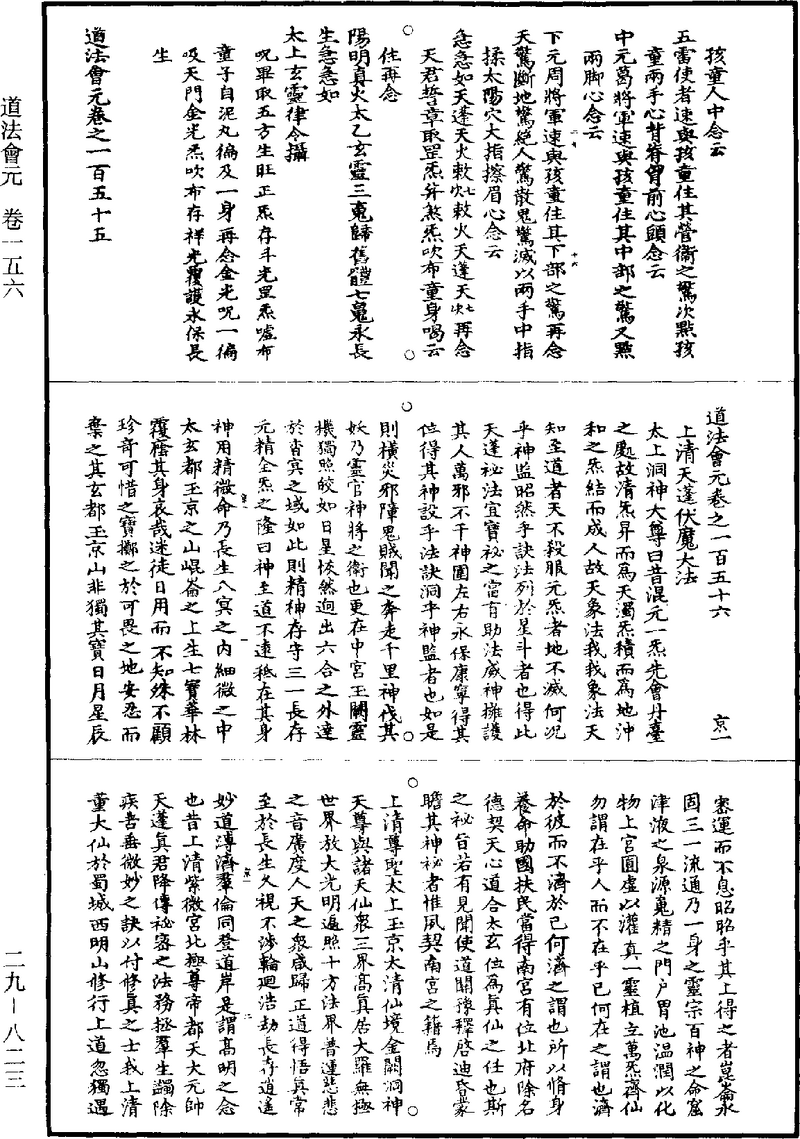 孩童人中念云
五雷使者速與孩童住其營衞之驚次點孩
童兩手心背脊胷前心頭念云
中元葛將軍速與孩童住其中部之驚又點
兩脚心念云
下元周將軍速與孩童住其下部之驚再念
天驚斷地驚絕人驚散鬼驚滅以兩手中指
揉太陽穴大指擦眉心念云
急急如天蓬天火敕七次敕火天蓬天七次再念
天君誓章取罡炁并煞炁吹布童身喝云
住再念
陽明真火太乙玄靈三䰟歸舊體七魄永長
生急急如
太上玄靈律令攝
呪畢取五方生旺正炁存斗光罡炁噓布
童子自泥丸徧及一身再念金光呪一徧
吸天門金光炁吹布存祥光覆護永保長
生
道法會元卷之一百五十五
道法會元　卷一五六
二九－八二三
道法會元卷之一百五十六
京一
上清天蓬伏魔大法
太上洞神大尊曰昔混元一炁先會丹臺
之處故清炁昇而為天濁炁積而為地沖
和之炁結而成人故天象法我我象法天
知至道者天不殺服元炁者地不滅何況
乎神監昭然乎訣法列於星斗者也得此
天蓬祕法宜寶祕之當有助法威神擁護
其人萬邪不干神圍左右永保康寧得其
位得其神設乎法訣洞乎神監者也如是
則橫災邪障鬼賊聞之奔走千里神伐其
妖乃靈官神將之衛也更在中宮玉闕靈
機獨照皎如日星恢然逈出六合之外達
於杳冥之域如此則精神存守三一長存
元精全炁之隆曰神至道不遠秪在其身
神用精微命乃長生八冥之內細微之中
太玄都玉京之山崐崙之上生七寶華林
覆蔭其身哀哉迷徒日用而不知殊不顧
珍奇可惜之寶擲之於可畏之地安忍而
棄之其玄都玉京山非獨其寶日月星辰
密運而不息昭昭乎其上得之者崑崙永
固三一流通乃一身之靈宗百神之命窟
津液之泉源䰟精之門户胃池温潤以化
物上宮圓虛以灌真一靈植立萬炁齊仙
勿謂在乎人而不在乎己何在之謂也濟
於彼而不濟於己何濟之謂也所以脩身
養命助國扶民當得南宮有位北府除名
德契天心道合太玄位為真仙之任也斯
之祕旨若有見聞使道開豫釋啓迪昏蒙
瞻其神祕者惟夙契南宮之籍焉
上清尊聖太上玉京太清仙境金闕洞神
天尊與諸天仙衆三界高真居大羅無極
世界放大光明遍照十方法界普運慈悲
之音廣度人天之衆咸歸正道得悟真常
至於長生久視不涉輪廻浩劫長存逍遥
妙道溥濟羣倫同登道岸是謂高明之念
也昔上清紫微宮北極尊帝都天大元帥
天蓬真君降傳祕密之法務拯羣生蠲除
疾苦垂微妙之訣以付修真之士我上清
董大仙於蜀城西明山修行上道忽獨遇